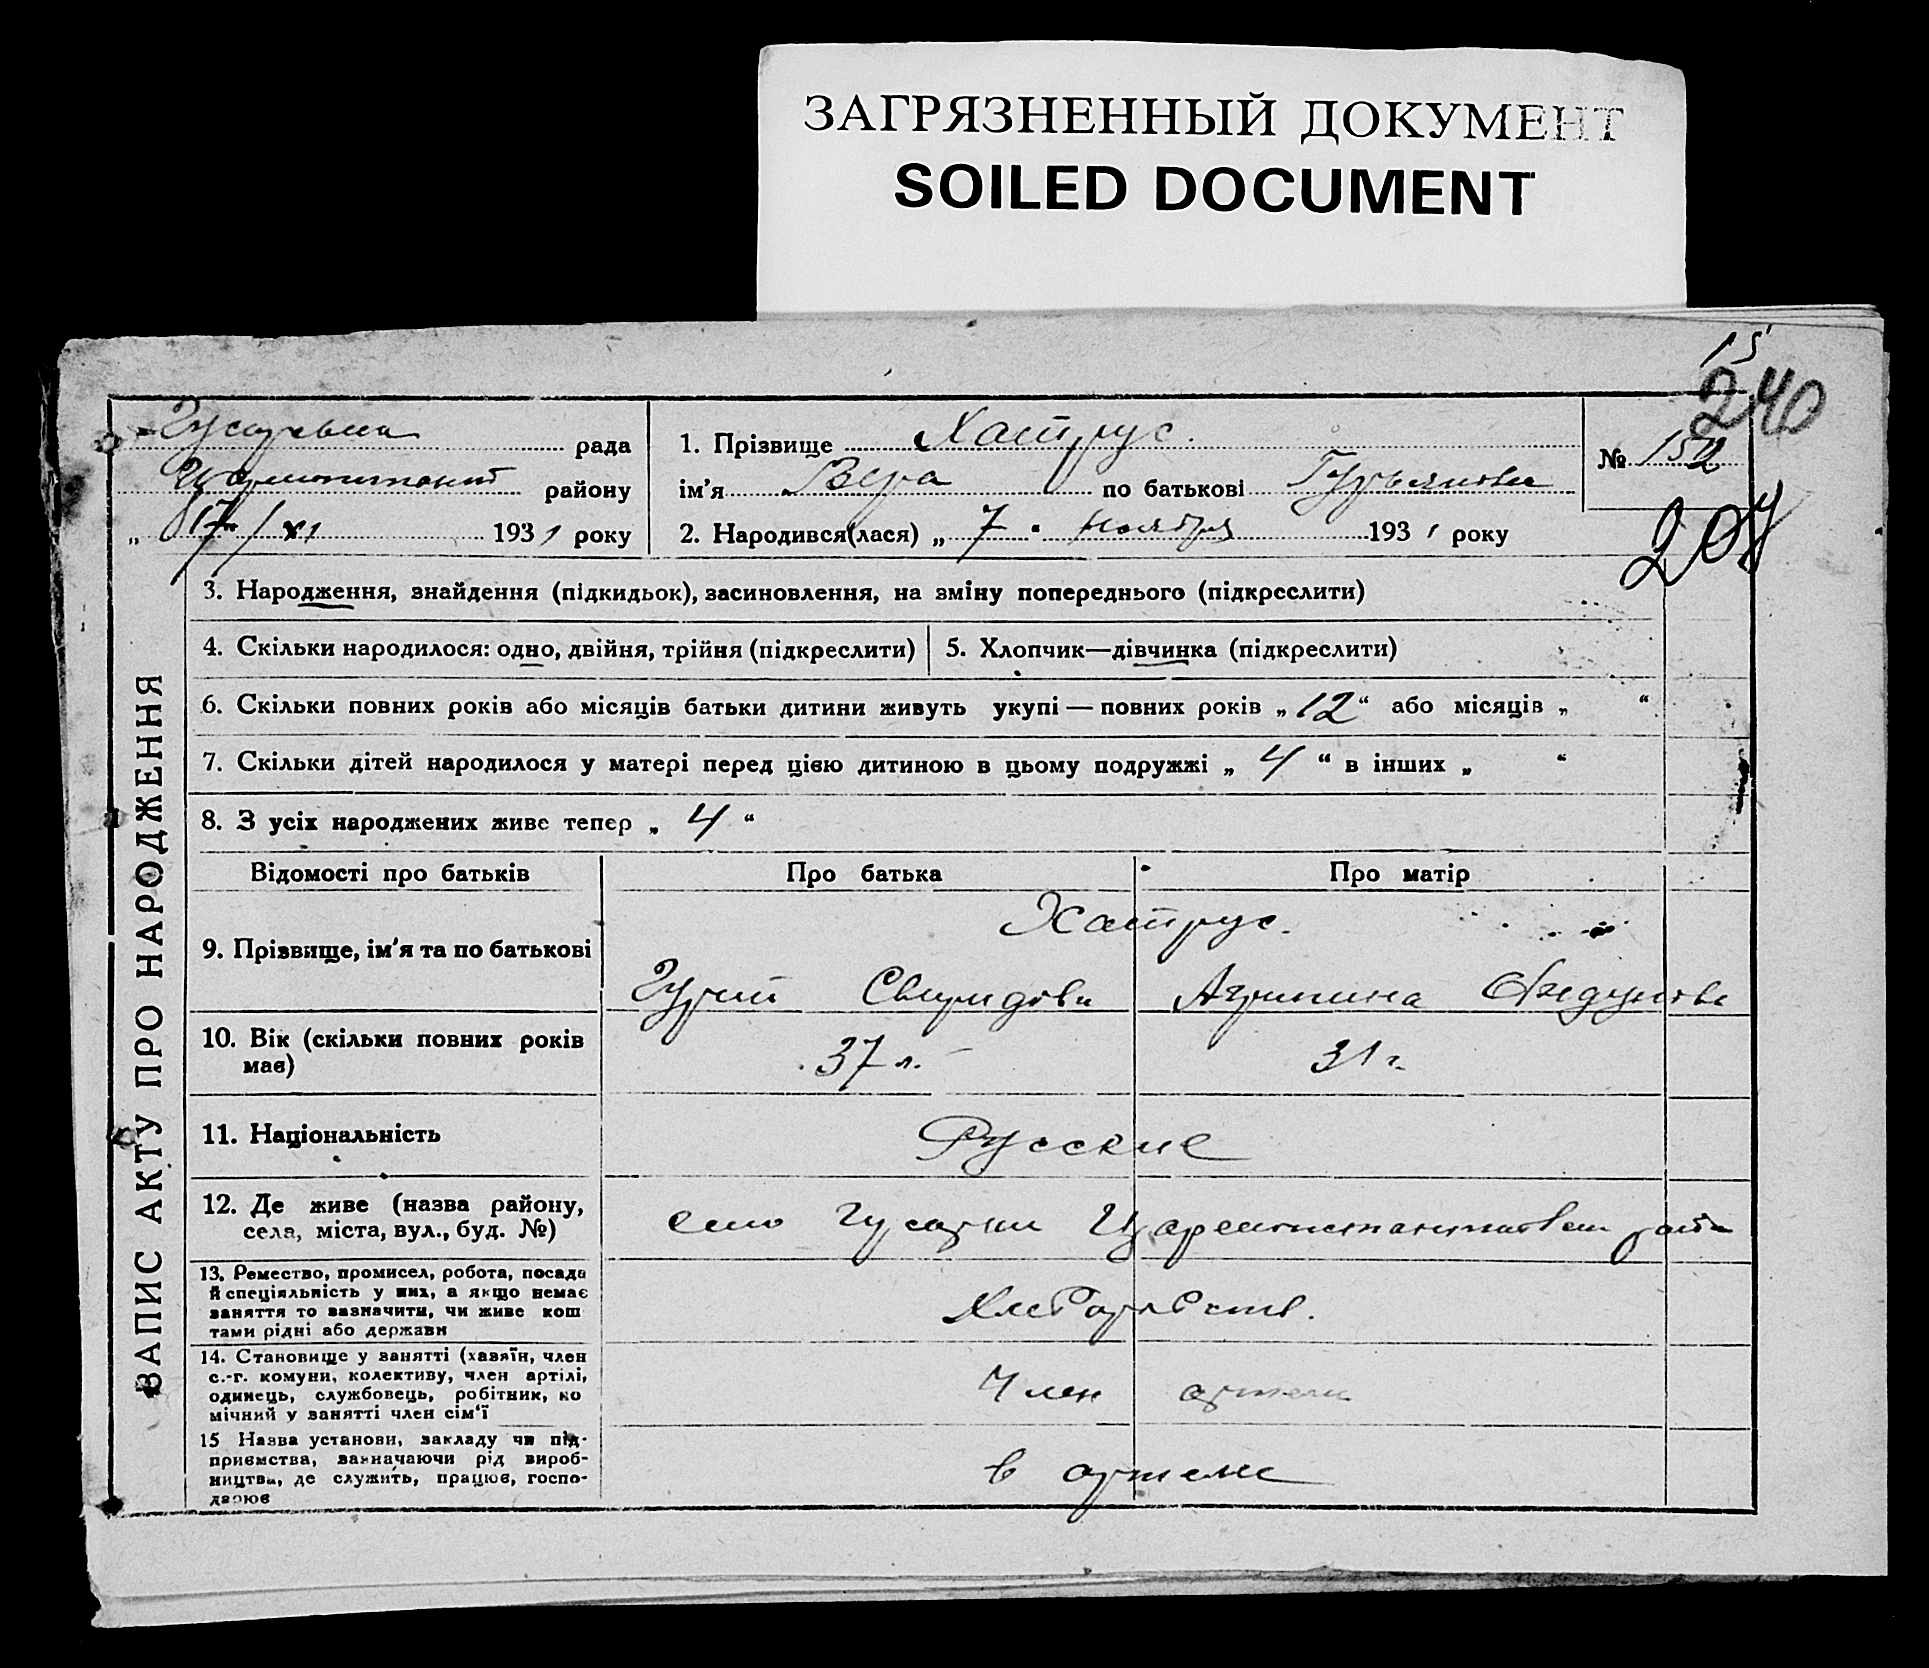 ЗАГРЯЗНЕННЫЙ ДОКУМЕНТ
SOILED DOCUMENT
15
240
рада
району
„ 17 / XI 1931 року
1. Прізвище Хатрус.
ім'я Вера по батькові Гурьянови
2. Народився(лася) „ 7 " ноября 1931 року
№ 152
207
3. Народження, знайдення (підкидьок), засиновлення, на зміну попереднього (підкреслити)
4. Скільки народилося: одно, двійня, трійня (підкреслити)
5. Хлопчик—дівчинка (підкреслити)
6. Скільки повних років або місяців батьки дитини живуть укупі — повних років „ 12 “ або місяців „ “
7. Скільки дітей народилося у матері перед цією дитиною в цьому подружжі „ 4 “ в інших „ “
8. З усіх народжених живе тепер „ 4 “
ЗАПИС АКТУ ПРО НАРОДЖЕННЯ
Відомості про батьків
Про батька
Про матір
9. Прізвище, ім'я та по батькові
Хатрус.
Гурий Свиридови
Агрипина
10. Вік (скільки повних років має)
37 л.
31 г.
11. Національність
Русские
12. Де живе (назва району,
села, міста, вул., буд. №)
село Гусарки Цареконстантиновски район
13. Ремество, промисел, робота, посада
й спеціяльність у них, а якщо немає
заняття то зазначити, чи живе кош
тами рідні або держави
Хлеборобств.
14. Становище у занятті (хазяїн, член
с.-г. комуни, колективу, член артілі,
одинець, службовець, робітник, по
мічний у занятті член сім'ї
Член артели
15 Назва установи, закладу чи під-
приємства, зазначаючи рід вироб-
ництва, де служить, працює, госпо-
дарює
в артеле